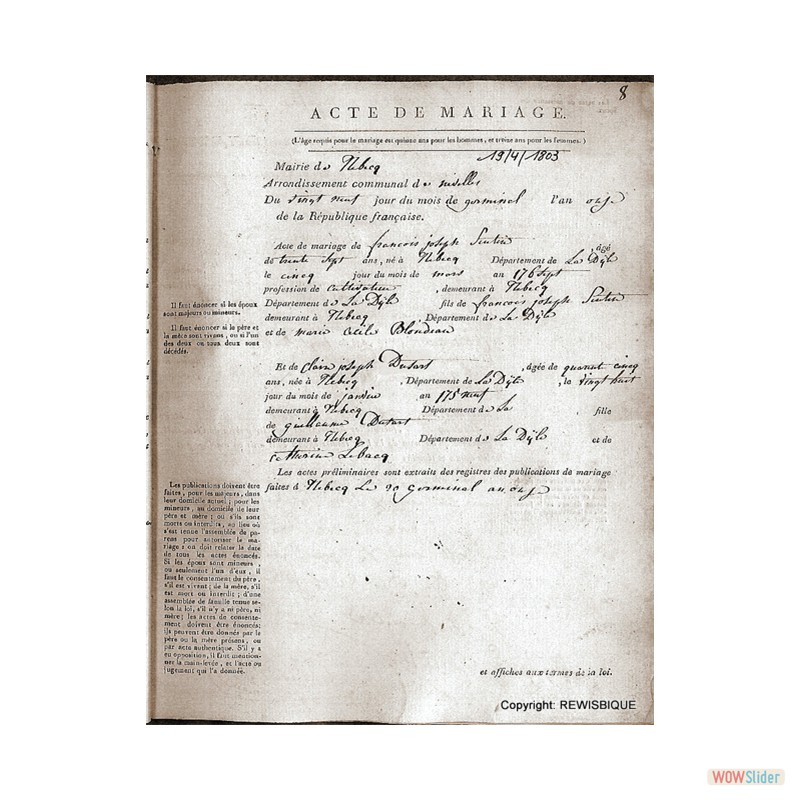 8
ACTE DE MARIAGE.
(L'âge requis pour le mariage est quinze ans pour les hommes, et treize ans pour les femmes.)
19/4/1803
Mairie de Hebecq
Arrondissement communal de nivelles
Du vingt neuf jour du mois de germinal l'an onze
de la République française.
Acte de mariage de francois joseph , âgé
de trente sept ans, né à Hebecq Département de La Dyle
le cincq jour du mois de mars an 176 sept
profession de cultivateur , demeurant à Hebecq
Département de La Dyle fils de francois joseph
demeurant à Hebecq Département de La Dyle
et de marie Cecile Blondeau
Il faut énoncer si les époux
sont majeurs ou mineurs.
Il faut énoncer si le père et
la mère sont vivans, ou si l'un
des deux ou tous deux sont
décédés.
Et de claire joseph Dusart , âgée de quarant cincq
ans, née à Hebecq , Département de La Dyle , le vingt huit
jour du mois de janvier an 175 neuf
demeurant à Hebecq Département de La , fille
de guilleaume Dusart
demeurant à Hebecq Département de La Dyle et de
Lebacq
Les actes préliminaires sont extraits des registres des publications de mariage
faites à Hebecq Le 20 germinal an onze
Les publications doivent être
faites, pour les majeurs, dans
leur domicile actuel ; pour les
mineurs, au domicile de leur
père et mère ; ou s'ils sont
morts ou interdits, au lieu où
s'est tenue l'assemblée de pa-
rens pour autoriser le ma-
riage : on doit relater la date
de tous les actes énoncés.
Si les époux sont mineurs,
ou seulement l'un d'eux, il
faut le consentement du père,
s'il est vivant ; de la mère, s'il
est mort ou interdit ; d'une
assemblée de famille tenue se-
lon la loi, s'il n'y a ni père, ni
mère : les actes de consente-
ment doivent être énoncés;
ils peuvent être donnés par le
père ou la mère présens, ou
par acte authentique. S'il y a
eu opposition, il faut mention-
ner la main-levée, et l'acte ou
jugement qui l'a donnée.
et affiches aux termes de la loi.
Copyright: REWISBIQUE
WOWSlider